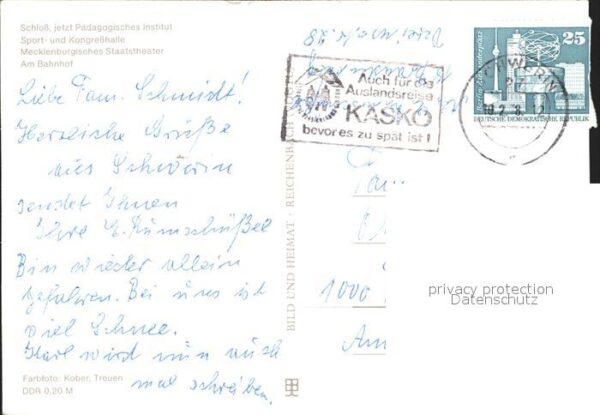 Schloß, jetzt Pädagogisches Institut
Sport- und Kongreßhalle
Mecklenburgisches Staatstheater
Am Bahnhof
Liebe Fam. Schmidt!
Herzliche Grüße
aus Schwerin
sendet Ihnen
Ihre E. Rumschüßel
Bin wieder allein
gefahren. Bei uns ist
viel Schnee.
Karl wird nun auch
mal schreiben.
Farbfoto: Kober, Treuen
DDR 0,20 M
BILD UND HEIMAT · REICHENBACH
Auch für die
Auslandsreise
KASKO
bevor es zu spät ist!
SCHWERIN
25
Berlin, Alexanderplatz
DEUTSCHE DEMOKRATISCHE REPUBLIK
Fam.
1000
Am
privacy protection
Datenschutz